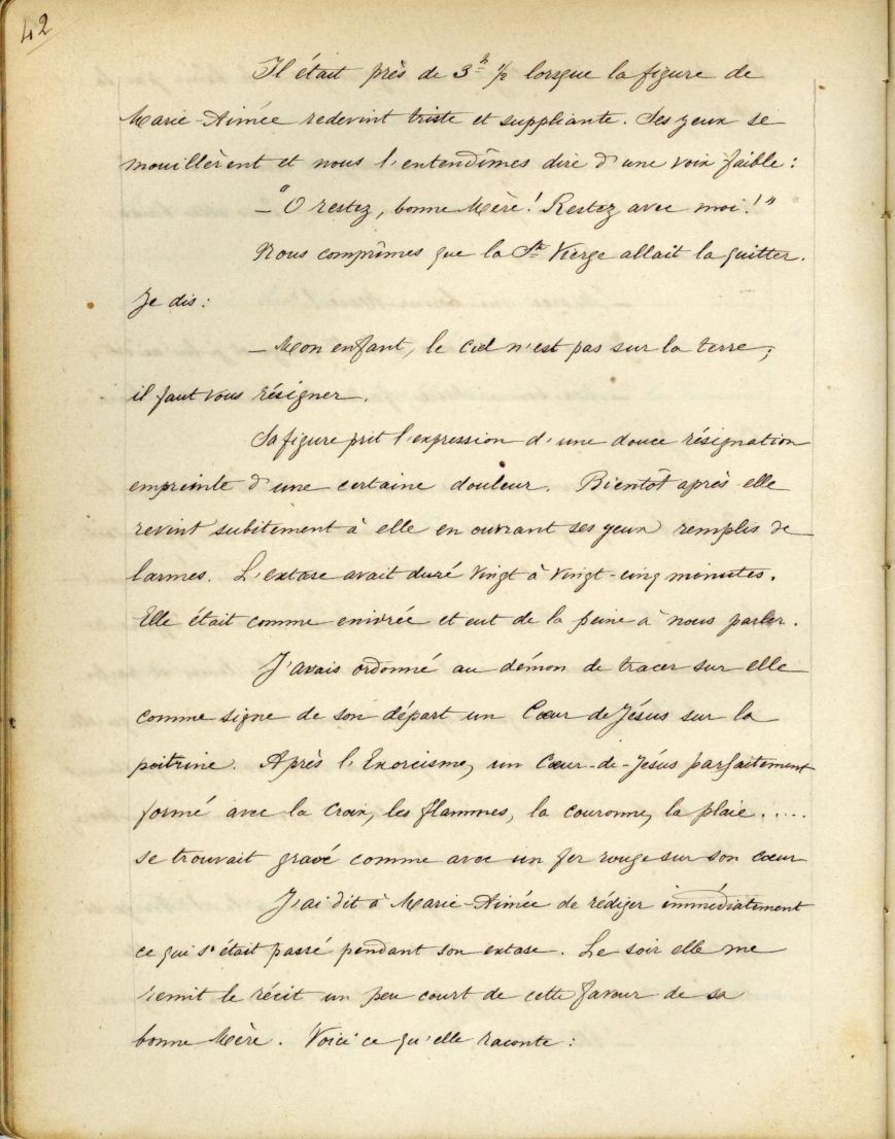 42
Il était près de 3h 1/2 lorsque la figure de
Marie-Aimée redevint triste et suppliante. Ses yeux se
mouillèrent et nous l'entendîmes dire d'une voix faible :
– "O restez, bonne Mère! Restez avec moi!"
Nous comprîmes que la Ste Vierge allait la quitter.
Je dis :
– Mon enfant, le Ciel n'est pas sur la terre ;
il faut vous résigner.
Sa figure prit l'expression d'une douce résignation
empreinte d'une certaine douleur. Bientôt après elle
revint subitement à elle en ouvrant ses yeux remplis de
larmes. L'extase avait duré vingt à vingt-cinq minutes.
Elle était comme enivrée et eut de la peine à nous parler.
J'avais ordonné au démon de tracer sur elle
comme signe de son départ un Cœur de Jésus sur la
poitrine. Après l'Exorcisme, un Cœur-de-Jésus parfaitement
formé avec la Croix, les flammes, la couronne, la plaie.....
se trouvait gravé comme avec un fer rouge sur son cœur
J'ai dit à Marie-Aimée de rédiger immédiatement
ce qui s'était passé pendant son extase. Le soir elle me
remit le récit un peu court de cette faveur de sa
bonne Mère. Voici ce qu'elle raconte :